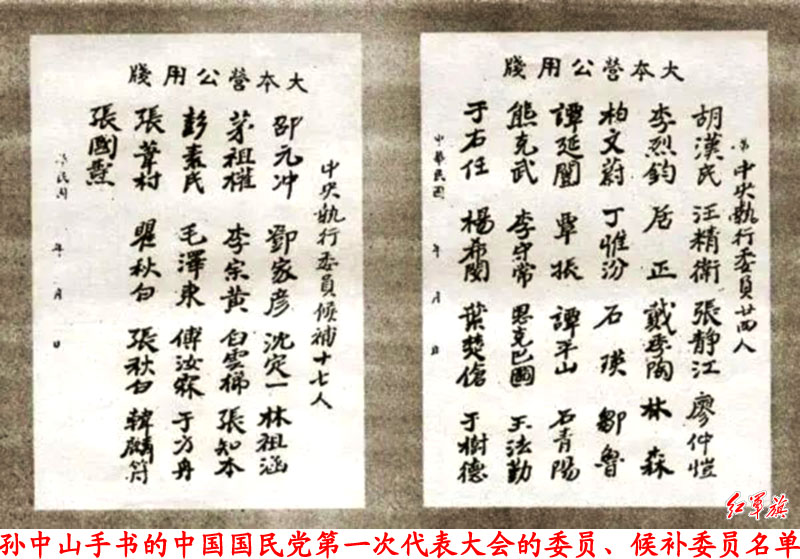 大本營公用牋
中央執行委員廿四人
胡漢民 汪精衛 張静江 廖仲愷
李烈鈞 居正 戴季陶 林森
柏文蔚 丁惟汾 石瑛 鄒魯
譚延闓 覃振 譚平山 石青陽
熊克武 李守常 恩克巴圖 王法勤
于右任 楊希閔 葉楚傖 于樹德
中華民國 年 月 日
大本營公用牋
中央執行委員候補十七人
邵元冲 鄧家彦 沈定一 林祖涵
茅祖權 李宗黄 白雲梯 張知本
彭素民 毛澤東 傅汝霖 于方舟
張葦村 瞿秋白 張秋白 韓麟符
張國燾
民國 年 月 日
红军旗
孙中山手书的中国国民党第一次代表大会的委员、候补委员名单